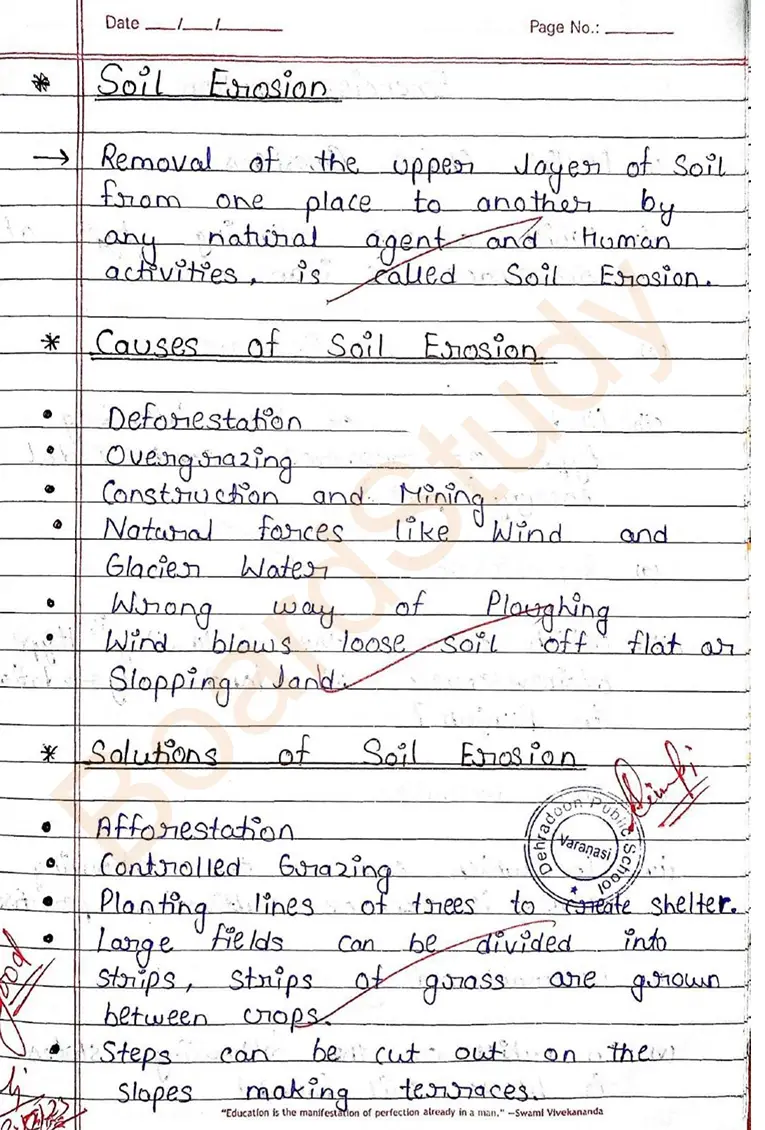 Date ___/___/____ Page No.: ________
* Soil Erosion
→ Removal of the upper layer of Soil
from one place to another by
any natural agent and Human
activities, is called Soil Erosion.
* Causes of Soil Erosion
• Deforestation
• Overgrazing
• Construction and Mining
• Natural forces like Wind and
Glacier Water
• Wrong way of Ploughing
• Wind blows loose soil off flat or
Slopping land.
* Solutions of Soil Erosion
• Afforestation
• Controlled Grazing
• Planting lines of trees to create shelter.
• Large fields can be divided into
strips, strips of grass are grown
between crops.
• Steps can be cut out on the
slopes making terraces.
"Education is the manifestation of perfection already in a man." –Swami Vivekananda
Dehradoon Public School
Varanasi
Good
BoardStudy